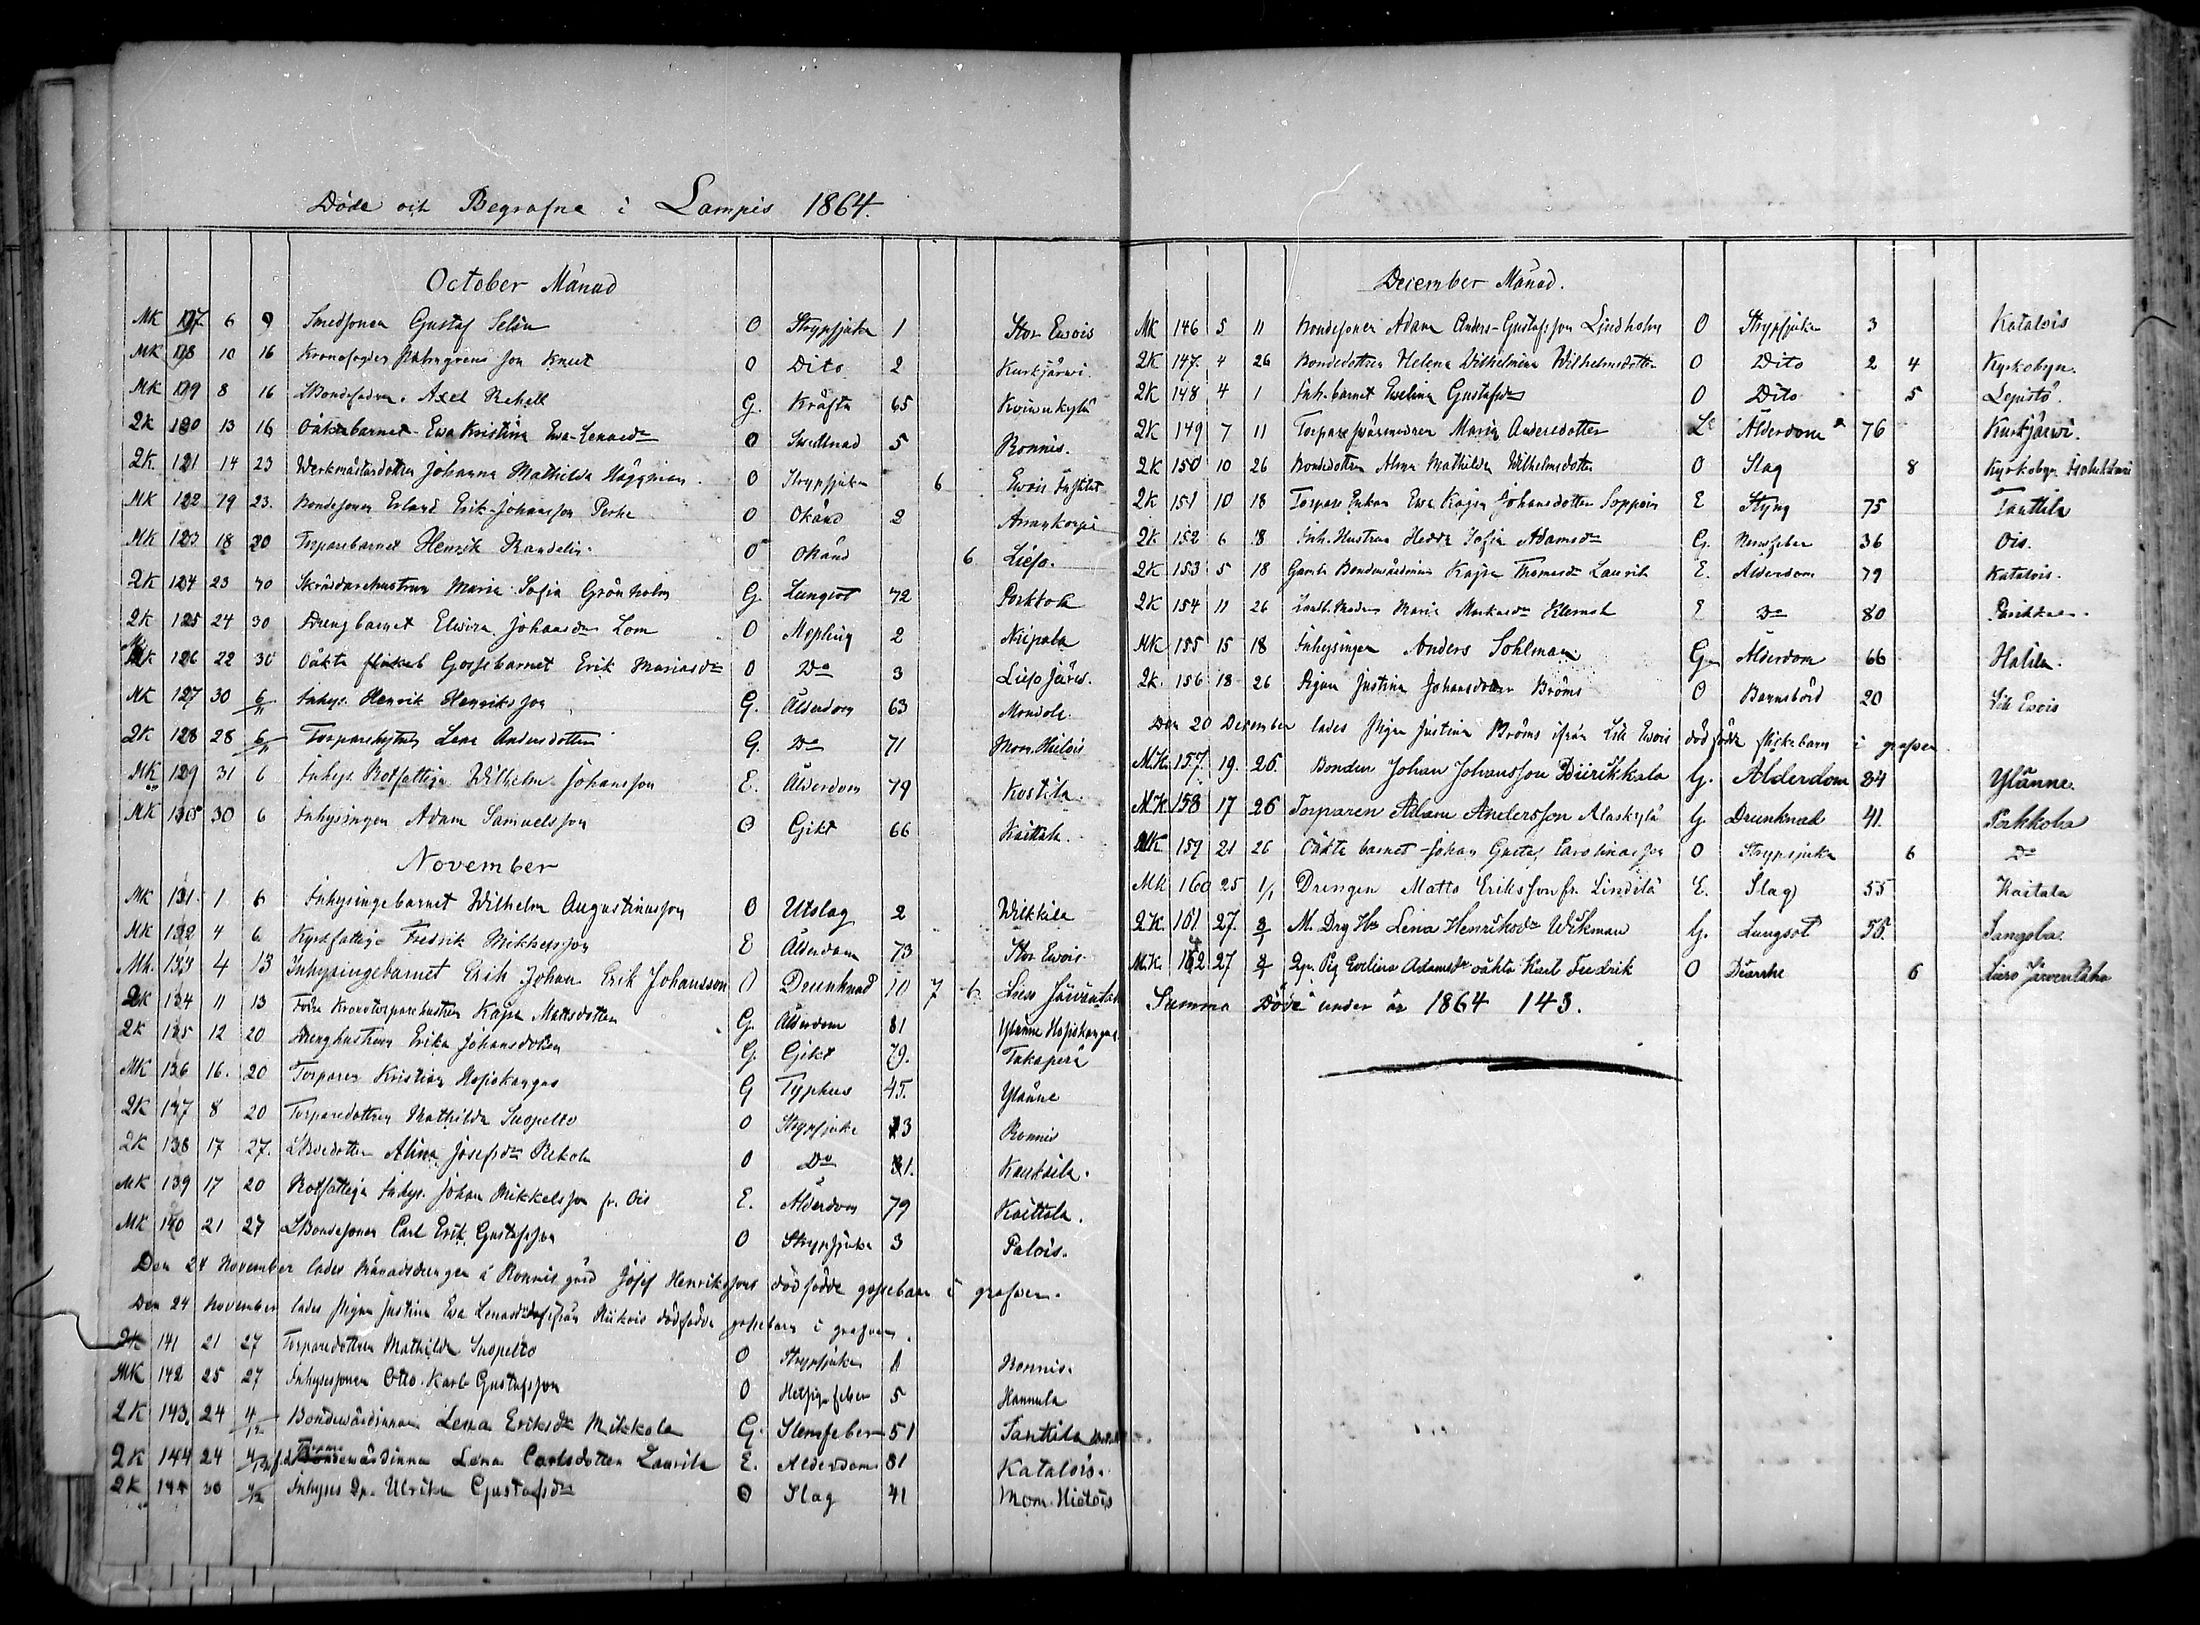 Döde och Begrafne i Lampis 1864.
October Månad
MK 117 6 9 Smedsonen Gustaf Selin O Strypsjuka 1 Stor Ewois
MK 118 10 16 Kronofogden son Knut O Dito 2 Kurkjärwi.
MK 119 8 16 Axel Rehell G. Kräfta 65
QK 120 13 16 Oäkta barnet Ewa Kristina Ewa-Lenaedr O 5 Ronnis.
QK 121 14 23 Werkmästaredottren Johanna Mathilda Häggman O Strypsjuka 6 Ewois Institut
MK 122 19 23. Bondesonen Erland Erik-Johansson Perho O Okänd 2
MK 123 18 20 Torparebarnet Henrik Randelin O Okänd 6 Lieso.
QK 124 23 30 Skräddarehustrun Maria Sofia Grönholm G. Lungsot 72 Porkkola
QK 125 24 30 Drengbarnet Elwira Johansdr Lom O Messling 2
MK 126 22 30 Oäkta Gossebarnet Erik Mariasdr O Do 3 Lieso järw.
MK 127 30 6/11 Inhys. Henrik Henriksson G. Ålderdom 63
QK 128 28 6/11 Lena Andersdotter G. Do 71
MK 129 31 6 Inhys. Rotfattiga Wilhelm Johansson E. Ålderdom 79 Kostila
MK 130 30 6 Inhysingen Adam Samuelsson O Gikt 66 Kaitala.
November
MK 131 1 6 Inhysingebarnet Wilhelm Augustinusson O Utslag 2 Wilkkila
MK 132 4 6 Fredrik Mikkelsson E Ålderdom 73 Stor Ewois
MK. 133 4 13 Inhysingebarnet Erik Johan Erik Johansson O Drunknad 10 7 6 Lieso Järwentaka
QK 134 11 13 Kronotorparehustrun Kajsa Mattsdotter G. Ålderdom 81 Ylänne Hopiakangas
QK 135 12 20 Drenghustrun Erika Johansdotter G. Gikt 79. Takaperä
MK 136 16. 20 Torparen Kristian Hopiakangas G Typhus 45. Ylänne
QK 137 8 20 Torparedottren Mathilda Suopelto O Strypsjuka 3 Ronnis
QK 138 17 27. Alina Josefsdr Rekola O Do 1.
MK 139 17 20 Rotfattiga Inhys. Johan Mikkelsson fr. Ois E. Ålderdom 79 Kaitala.
MK 140 21 27 Bondesonen Carl Erik Gustafsson O Strypsjuka 3 Palois.
Den 24 November lades Månadsdrengen å Ronnis gård Josef Henrikssons dödfödde gossebarn i grafwen.
Den 24 November lades pigan Justina Ewa Lenasdotter från dödfödda gossebarn i grafwen.
QK 141 21 27 Torparedottren Mathilda Suopelto O Strypsjuka 1 Ronnis.
MK 142 25 27 Inhysesonen Otto Karl Gustafsson O Hetsig feber 5 Hannula
QK 143. 24 4/12 Bondewärdinnan Lena Eriksdr Mikkola G. Slemfeber 51 Tanttila
QK 144 24 4/12 Lena Carlsdotter Laurila E. Ålderdom 81 Katalois.
QK 145 30 4/12 Inhyses Ulrika Gustafsdr O Slag 41 Mom. Hietois
December Månad.
MK 146 5 11 Bondesonen Adam Anders-Gustafsson Lindholm O Strypsjuka 3 Katalois
QK 147. 4 26 Bondedottren Helena Wilhelmina Wilhelmsdotter O Dito 2 4 Kyrkobyn.
QK 148 4 1 Inh. barnet Ewelina Gustafsdr O Dito 5 Lepistö.
QK 149 7 11 Maria Andersdotter Ålderdom 76 Kurkjärwi.
QK 150 10 26 Bondedottren Alma Mathilda Wilhelmsdotter O Slag 8 Kyrkobyn
QK 151 10 18 Torpare Enkan Ewa Kajsa Johansdotter E Styng 75 Tanttila
QK 152 6 18 Inh. Hustrun Hedda Sofia Adamsdr G. Nervfeber 36 Ois.
QK 153 5 18 Gamla Bondewärdinnan Kajsa Thomasdr Laurila E. Ålderdom 79 Katalois.
QK 154 11 26 Maria Markusdr Klemola E Do 80
MK 155 15 18 Inhysingen Anders Sohlman G. Ålderdom 66 Halila.
QK. 156 18 26 Pigan Justina Johansdotter Bröms O Barnsbörd 20 Lill Ewois
Den 20 December lades Pigan Justina Bröms ifrån Lill Ewois dödfödda flickebarn i grafwen
M.K. 157. 19. 26. Bonden Johan Johansson Piirikkala G. Ålderdom 84 Ylänne.
M.K 158 17 26 Torparen Adam Andersson Alaskylä G Drunknad 41. Porkkola
MK 159 21 26 Oäkta barnet Johan Gustaf Carolinasson O Strypsjuka 6 Do
MK 160 25 1/1 Drengen Matts Eriksson fr. Lindilä E. Slag 55 Kaitala
QK. 161 27. 8/1 M. Drg Hu Lena Henriksdr Wikman G. Lungsot 55. Sangola.
M.K. 162 27 8/1 Pig Evelina Adamsdr oäkta Karl Fredrik O Diarrhe 6 Lieso Järwentaka
Summa Döde under år 1864 143.